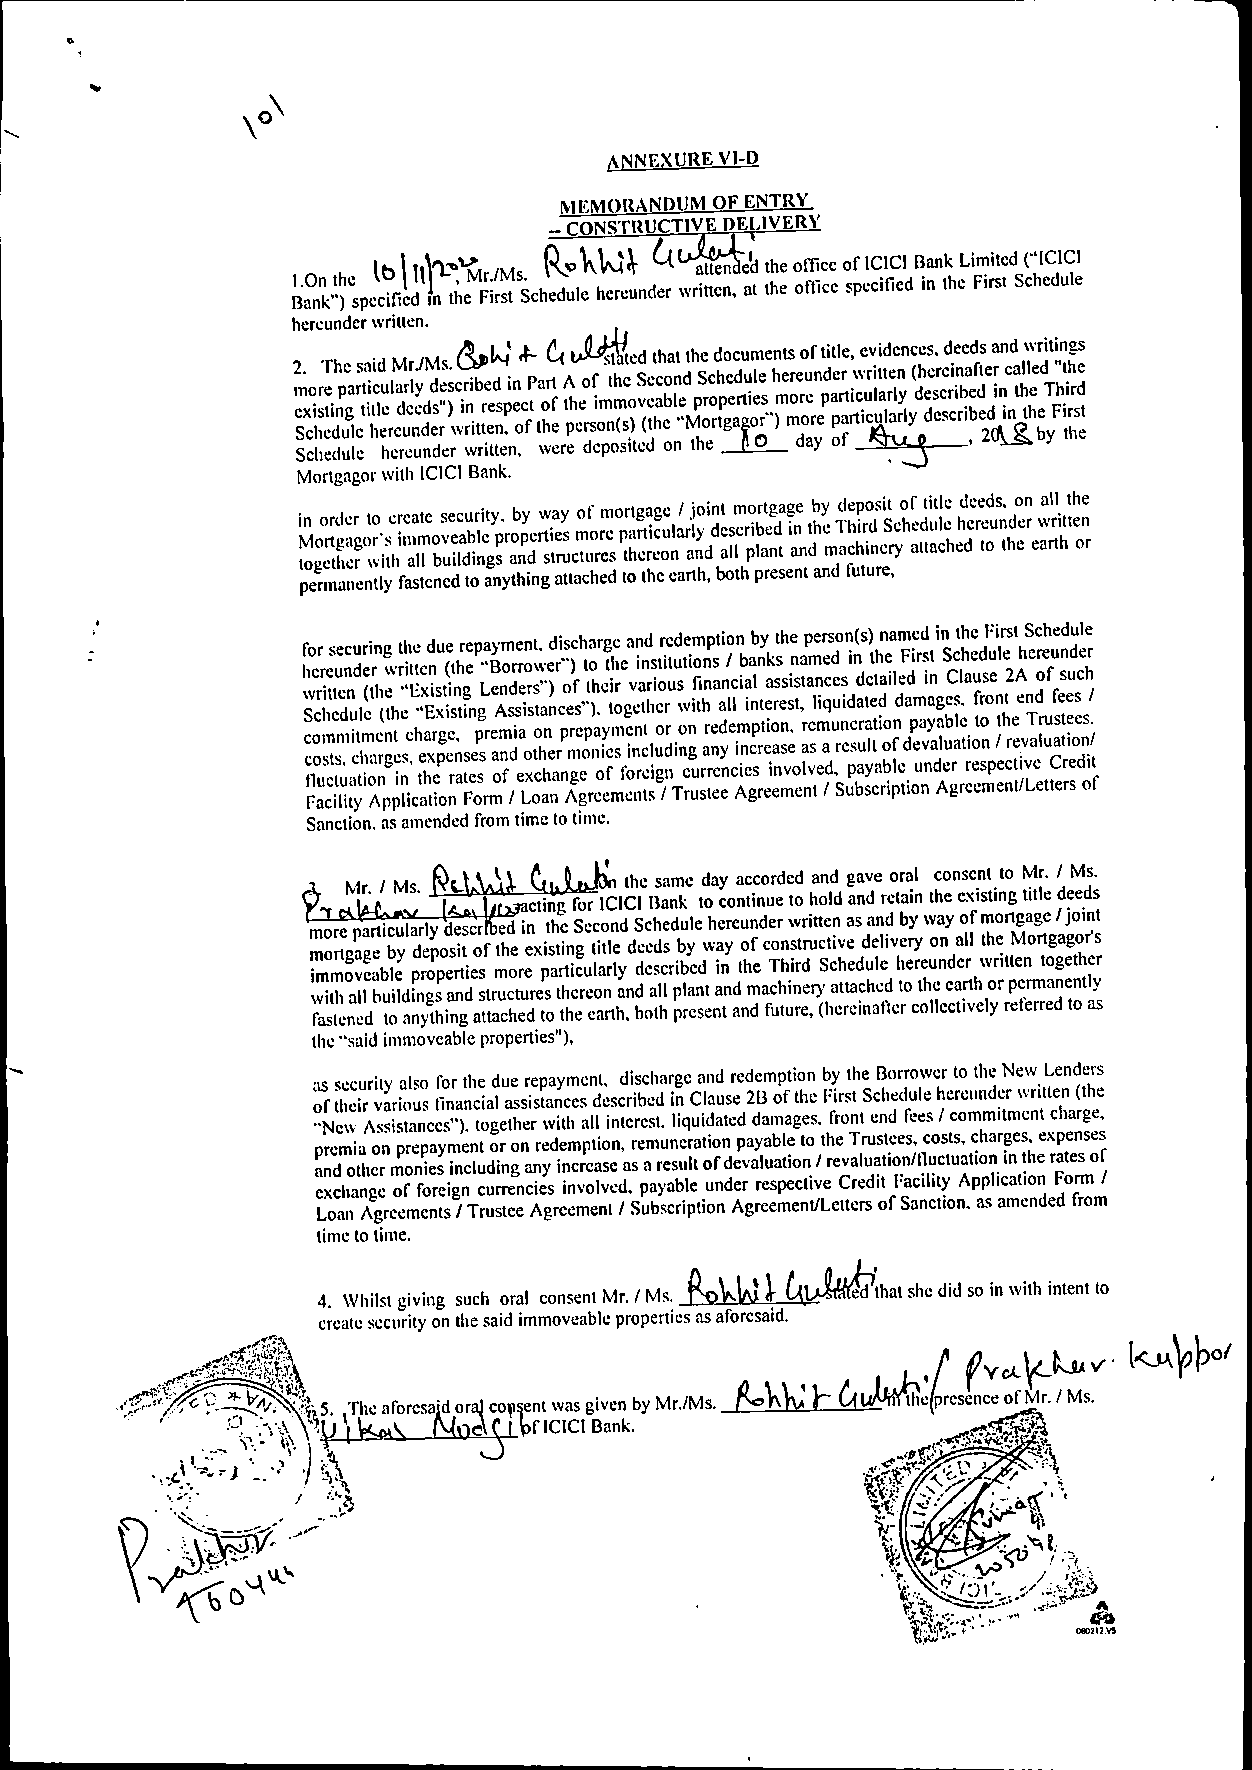 101
ANNEXURE VI-D
MEMORANDUM OF ENTRY
– CONSTRUCTIVE DELIVERY
1.On the 10/11/20, Mr./Ms. Rohhit Gulati attended the office of ICICI Bank Limited ("ICICI
Bank") specified in the First Schedule hereunder written, at the office specified in the First Schedule
hereunder written.
2. The said Mr./Ms. Rohit Gulati stated that the documents of title, evidences, deeds and writings
more particularly described in Part A of the Second Schedule hereunder written (hereinafter called "the
existing title deeds") in respect of the immoveable properties more particularly described in the Third
Schedule hereunder written, of the person(s) (the "Mortgagor") more particularly described in the First
Schedule hereunder written, were deposited on the 10 day of Aug, 2018 by the
Mortgagor with ICICI Bank.
in order to create security, by way of mortgage / joint mortgage by deposit of title deeds, on all the
Mortgagor's immoveable properties more particularly described in the Third Schedule hereunder written
together with all buildings and structures thereon and all plant and machinery attached to the earth or
permanently fastened to anything attached to the earth, both present and future,
for securing the due repayment, discharge and redemption by the person(s) named in the First Schedule
hereunder written (the "Borrower") to the institutions / banks named in the First Schedule hereunder
written (the "Existing Lenders") of their various financial assistances detailed in Clause 2A of such
Schedule (the "Existing Assistances"), together with all interest, liquidated damages, front end fees /
commitment charge, premia on prepayment or on redemption, remuneration payable to the Trustees,
costs, charges, expenses and other monies including any increase as a result of devaluation / revaluation/
fluctuation in the rates of exchange of foreign currencies involved, payable under respective Credit
Facility Application Form / Loan Agreements / Trustee Agreement / Subscription Agreement/Letters of
Sanction, as amended from time to time.
3. Mr. / Ms. Rohhit Gulati on the same day accorded and gave oral consent to Mr. / Ms.
Prakhar acting for ICICI Bank to continue to hold and retain the existing title deeds
more particularly described in the Second Schedule hereunder written as and by way of mortgage / joint
mortgage by deposit of the existing title deeds by way of constructive delivery on all the Mortgagor's
immoveable properties more particularly described in the Third Schedule hereunder written together
with all buildings and structures thereon and all plant and machinery attached to the earth or permanently
fastened to anything attached to the earth, both present and future, (hereinafter collectively referred to as
the "said immoveable properties"),
as security also for the due repayment, discharge and redemption by the Borrower to the New Lenders
of their various financial assistances described in Clause 2B of the First Schedule hereunder written (the
"New Assistances"), together with all interest, liquidated damages, front end fees / commitment charge,
premia on prepayment or on redemption, remuneration payable to the Trustees, costs, charges, expenses
and other monies including any increase as a result of devaluation / revaluation/fluctuation in the rates of
exchange of foreign currencies involved, payable under respective Credit Facility Application Form /
Loan Agreements / Trustee Agreement / Subscription Agreement/Letters of Sanction, as amended from
time to time.
4. Whilst giving such oral consent Mr. / Ms. Rohhit Gulati stated that she did so in with intent to
create security on the said immoveable properties as aforesaid.
5. The aforesaid oral consent was given by Mr./Ms. Rohhit Gulati / Prakhar Kuppor in the presence of Mr. / Ms.
Vikas Modgi of ICICI Bank.
LIMITED
Prakhar
205098
080212.V5